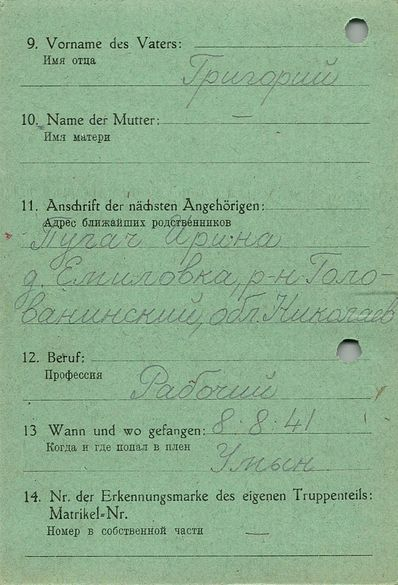 9. Vorname des Vaters:
Имя отца
Григорий
10. Name der Mutter: —
Имя матери
11. Anschrift der nächsten Angehörigen:
Адрес ближайших родственников
Пугач Ирина
д. Емиловка, р-н Голо-
ванинский, обл. Николаев
12. Beruf:
Профессия
Рабочий
13 Wann und wo gefangen: 8. 8. 41
Когда и где попал в плен
Умын
14. Nr. der Erkennungsmarke des eigenen Truppenteils:
Matrikel-Nr.
Номер в собственной части —